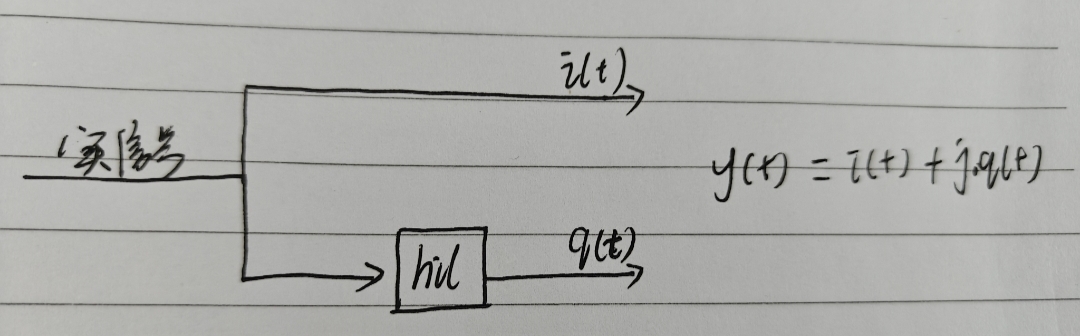 i(t)
实信号
y(t) = i(t) + j·q(t)
q(t)
hil